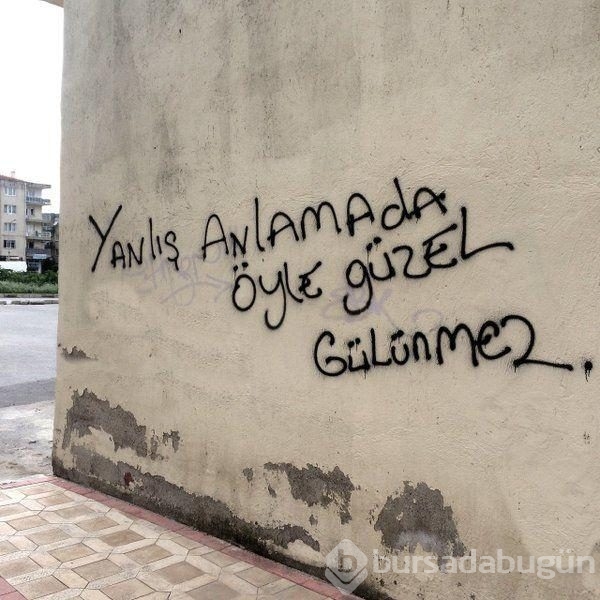 YANLIŞ ANLAMADA
ÖYLE GÜZEL
GÜLÜNMEZ.
bursadabugün